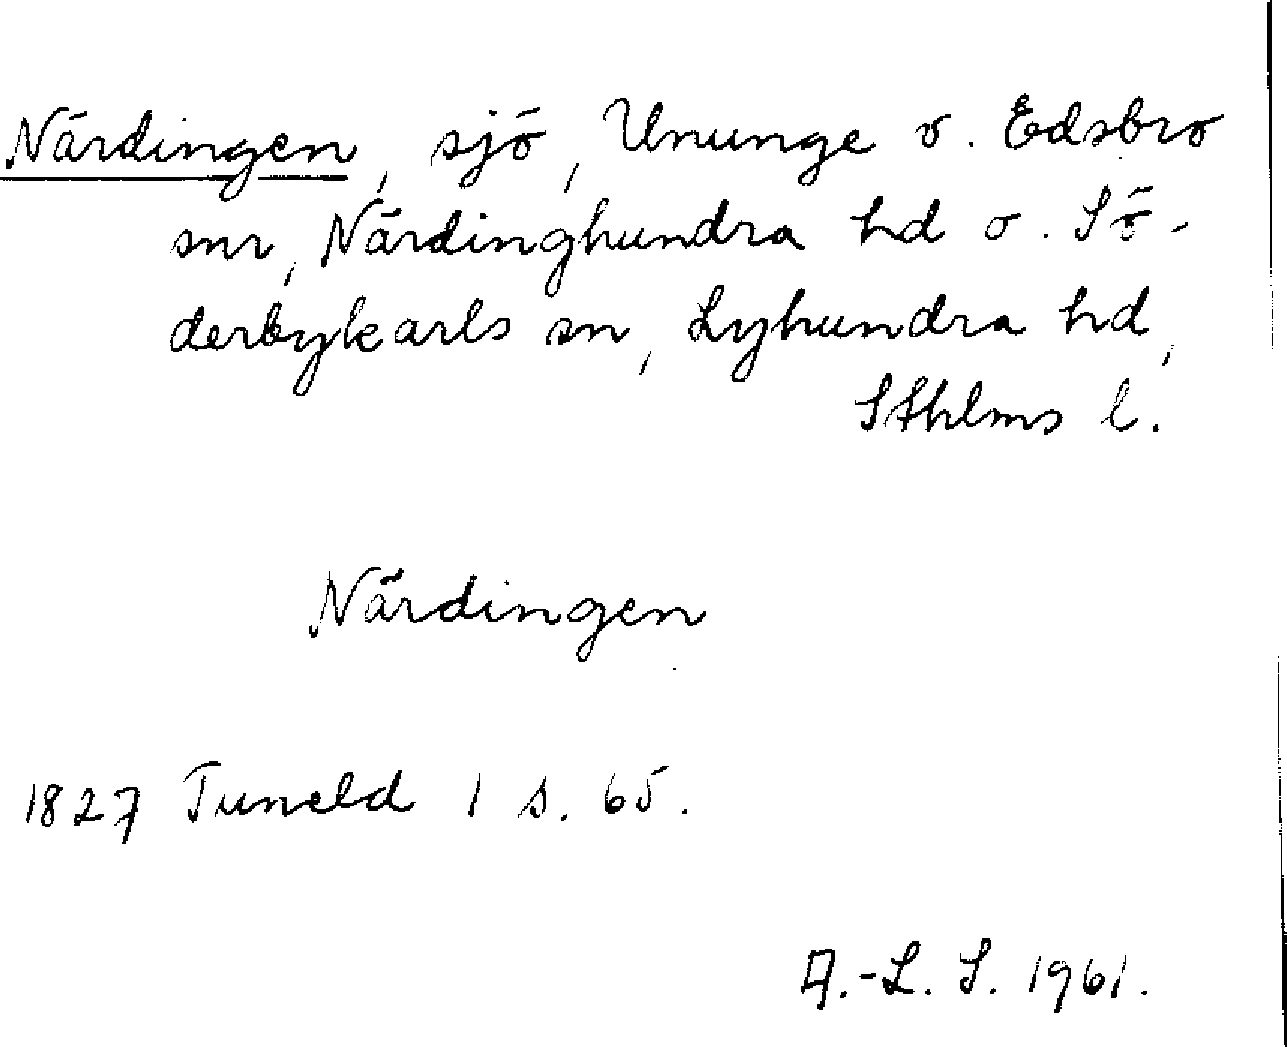 Närdingen, sjö, Ununge o. Edsbro
snr, Närdinghundra hd o. Sö-
derbykarls sn, Lyhundra hd,
Sthlms l.
Närdingen
1827 Tuneld 1 s. 65.
A.-L. S. 1961.